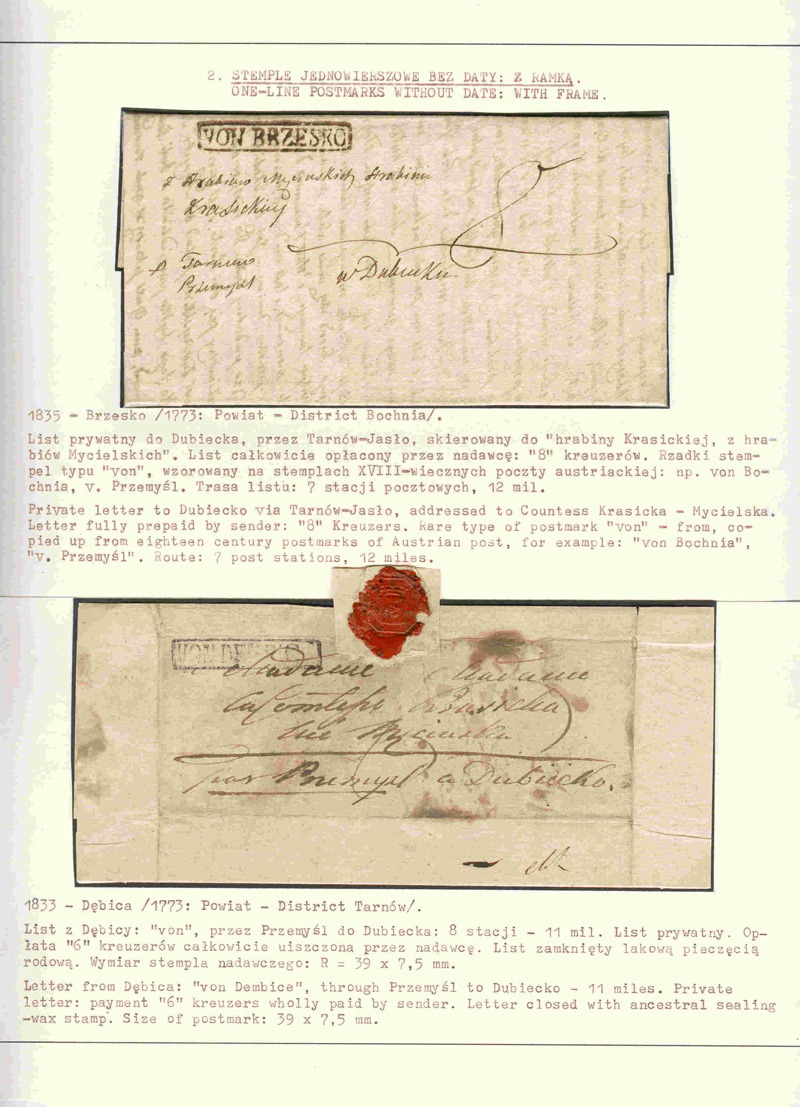 2. STEMPLE JEDNOWIERSZOWE BEZ DATY: Z RAMKĄ.
ONE-LINE POSTMARKS WITHOUT DATE: WITH FRAME.
VON BRZESKO
z Hrabiów Mycielskich Hrabini
Krasickiey
p Tarnow
Przemysl
w Dubiecku
8
1835 - Brzesko /1773: Powiat - District Bochnia/.
List prywatny do Dubiecka, przez Tarnów-Jasło, skierowany do "hrabiny Krasickiej, z hra-
biów Mycielskich". List całkowicie opłacony przez nadawcę: "8" kreuzerów. Rzadki stem-
pel typu "von", wzorowany na stemplach XVIII-wiecznych poczty austriackiej: np. von Bo-
chnia, v. Przemyśl. Trasa listu: 7 stacji pocztowych, 12 mil.
Private letter to Dubiecko via Tarnów-Jasło, addressed to Countess Krasicka - Mycielska.
Letter fully prepaid by sender: "8" Kreuzers. Rare type of postmark "von" - from, co-
pied up from eighteen century postmarks of Austrian post, for example: "von Bochnia",
"v. Przemyśl". Route: 7 post stations, 12 miles.
VON
Madame Madame
La Comtesse Krasicka
née Mycielska
par Przemysl a Dubiecko.
1833 - Dębica /1773: Powiat - District Tarnów/.
List z Dębicy: "von", przez Przemyśl do Dubiecka: 8 stacji - 11 mil. List prywatny. Op-
łata "6" kreuzerów całkowicie uiszczona przez nadawcę. List zamknięty lakową pieczęcią
rodową. Wymiar stempla nadawczego: R = 39 x 7,5 mm.
Letter from Dębica: "von Dembice", through Przemyśl to Dubiecko - 11 miles. Private
letter: payment "6" kreuzers wholly paid by sender. Letter closed with ancestral sealing
-wax stamp. Size of postmark: 39 x 7,5 mm.